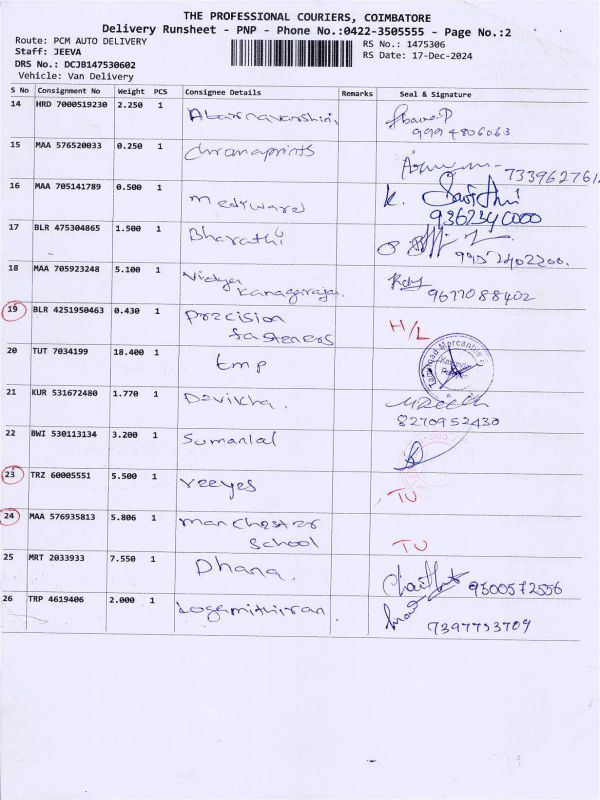 THE PROFESSIONAL COURIERS, COIMBATORE
Delivery Runsheet - PNP - Phone No.:0422-3505555 - Page No.:2
Route: PCM AUTO DELIVERY
Staff: JEEVA
DRS No.: DCJB147530602
Vehicle: Van Delivery
RS No.: 1475306
RS Date: 17-Dec-2024
S No Consignment No Weight PCS Consignee Details Remarks Seal & Signature
14 HRD 7000519230 2.250 1
9994806063
15 MAA 576520033 0.250 1 chromaprints
733962761
16 MAA 705141789 0.500 1 mediware K. Savithri
9362340000
17 BLR 475304865 1.500 1 Bharathi
9952402200.
18 MAA 705923248 5.100 1 Vidya
Kanagaraja.
9677088402
19 BLR 4251950463 0.430 1 Precision
fasteners
H/L
20 TUT 7034199 18.400 1 tmp
Tamilnad Mercantile
21 KUR 531672480 1.770 1 Devikha.
8270952430
22 BWI 530113134 3.200 1 Sumanlal
23 TRZ 60005551 5.500 1 veeyes
TU
24 MAA 576935813 5.806 1 manchester
School
TU
25 MRT 2033933 7.550 1 Dhana.
9500572556
26 TRP 4619406 2.000 1 Logamithiran.
7397753709